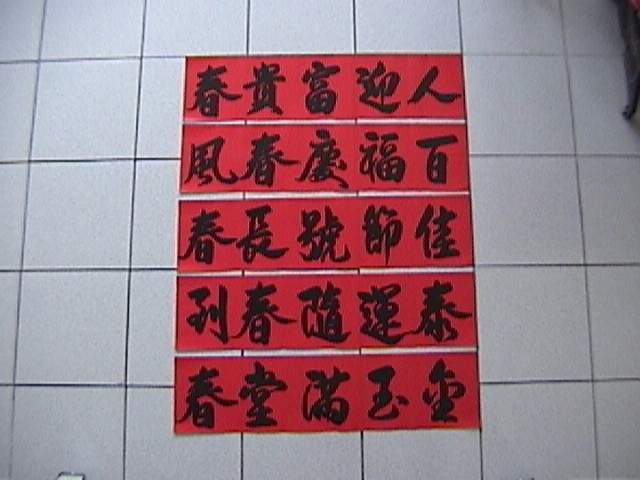 人迎富貴春
百福慶春風
佳節號長春
泰運隨春到
金玉滿堂春